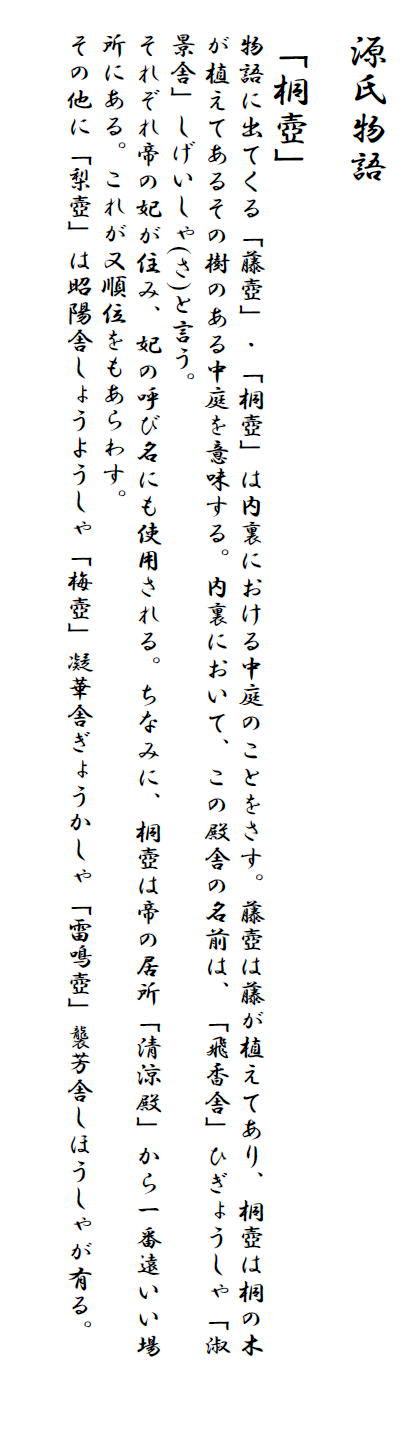 源氏物語
「桐壺」
物語に出てくる「藤壺」・「桐壺」は内裏における中庭のことをさす。藤壺は藤が植えてあり、桐壺は桐の木
が植えてあるその樹のある中庭を意味する。内裏において、この殿舎の名前は、「飛香舎」ひぎょうしゃ「淑
景舎」しげいしゃ(さ)と言う。
それぞれ帝の妃が住み、妃の呼び名にも使用される。ちなみに、桐壺は帝の居所「清涼殿」から一番遠いい場
所にある。これが又順位をもあらわす。
その他に「梨壺」は昭陽舎しょうようしゃ「梅壺」凝華舎ぎょうかしゃ「雷鳴壺」襲芳舎しほうしゃが有る。